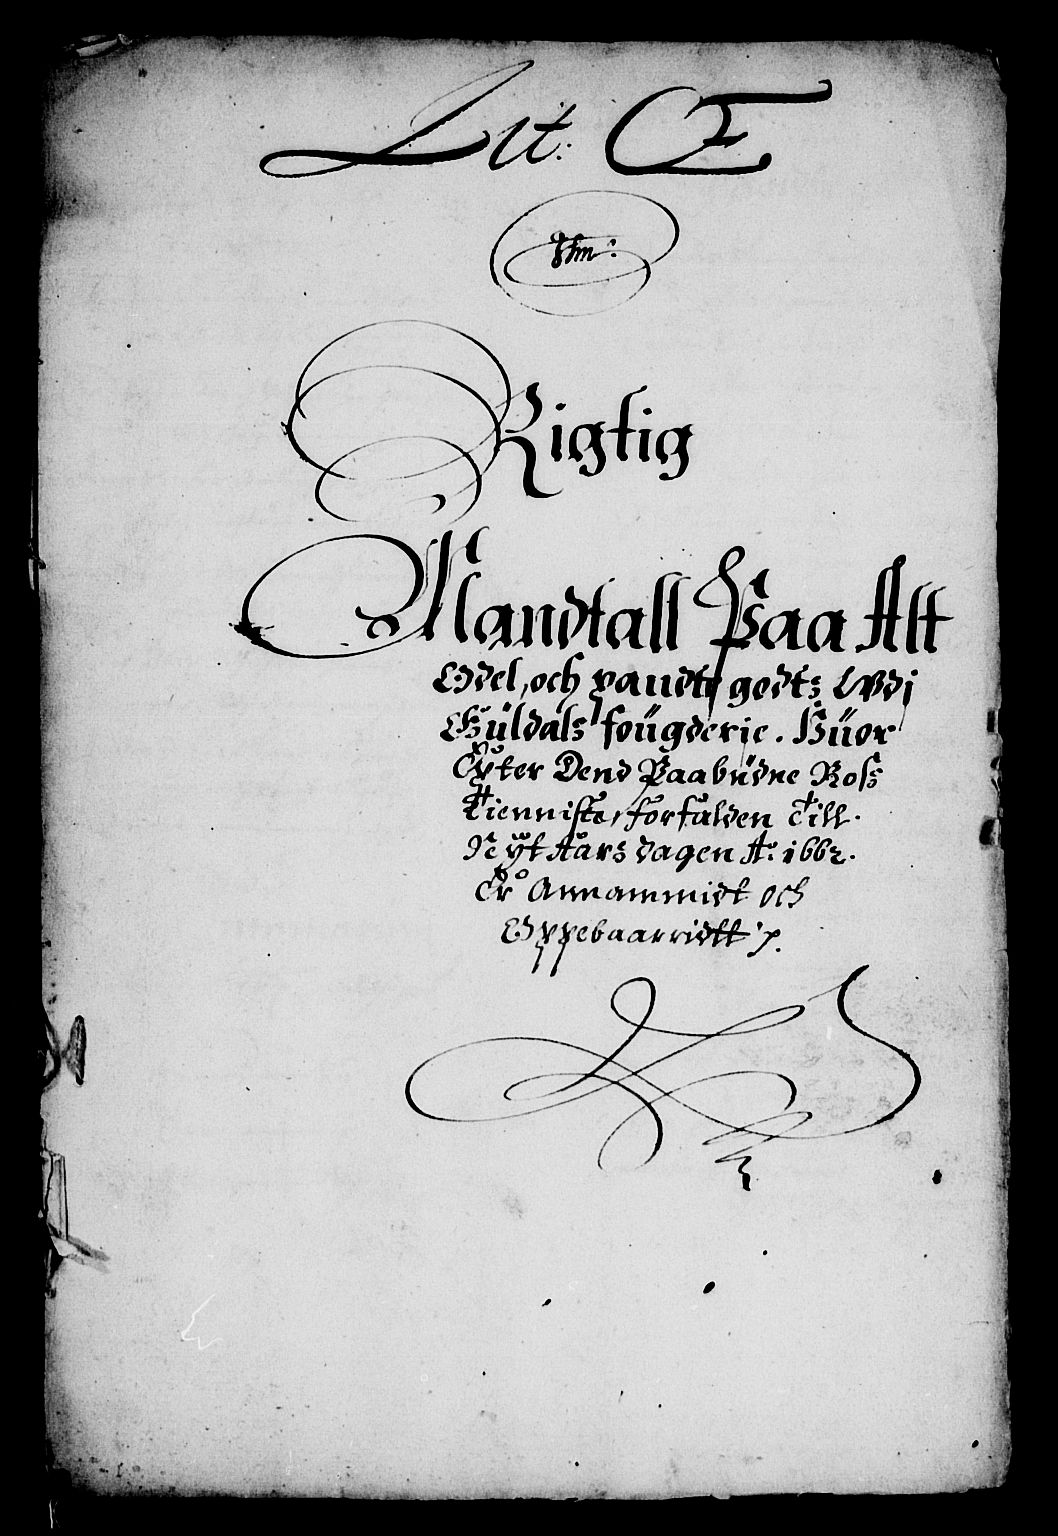 Lit: Œ
Rigtig
Mandtall Paa Alt
Odel, och pandte godtz Wdi
Guldals fougderie. Huor
Epter Dend Paabudne Ross
Tienniste, forfalden Till
Nyt Aars dagen Ao: 1662.
Er Annammidt och
Oppebaarridtt p.